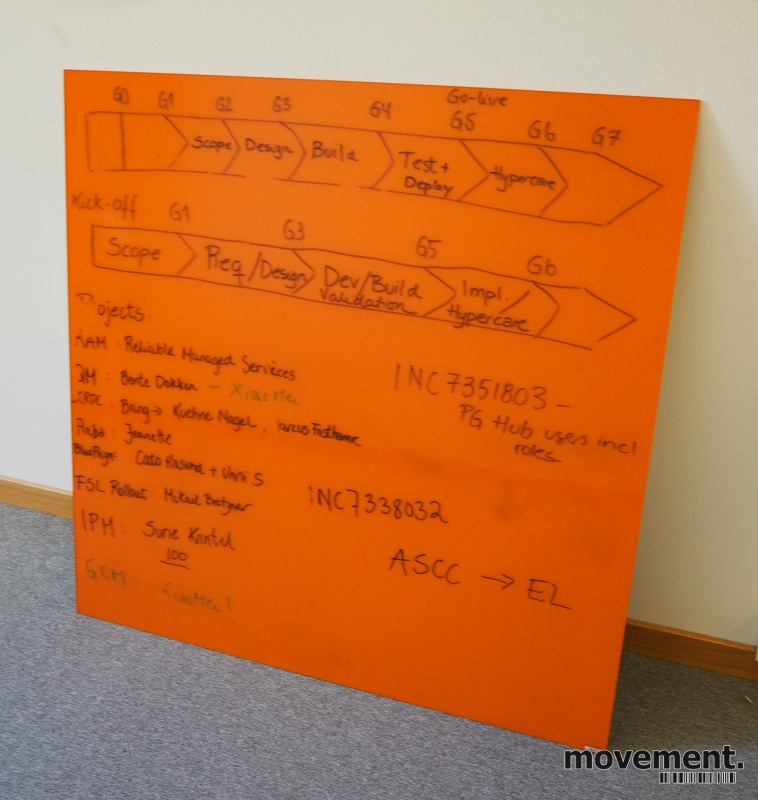 G0 G1 G2 G3 G4 Go-live G5 G6 G7
Scope Design Build Test + Deploy Hypercare
Kick-off G1 G3 G5 G6
Scope Req/Design Dev/Build Validation Impl./Hypercare
Projects:
: Reliable Managed Services
: Bente Dokken - XiaoMei
: Bring → Kuehne Nagel,
: Jeanette
: Cato + Unni S
FSL Rollout: Mikael
IPM: Sune
100
GCM: XiaoMei!
INC7351803 -
PG Hub users incl
roles
INC7338032
ASCC → EL
movement.